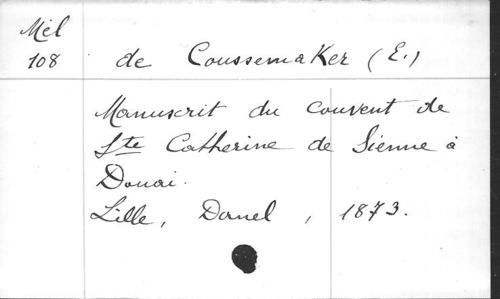 Mél
108
de Coussemaker (E.)
Manuscrit du couvent de
Ste Catherine de Sienne à
Douai.
Lille, Danel, 1873.